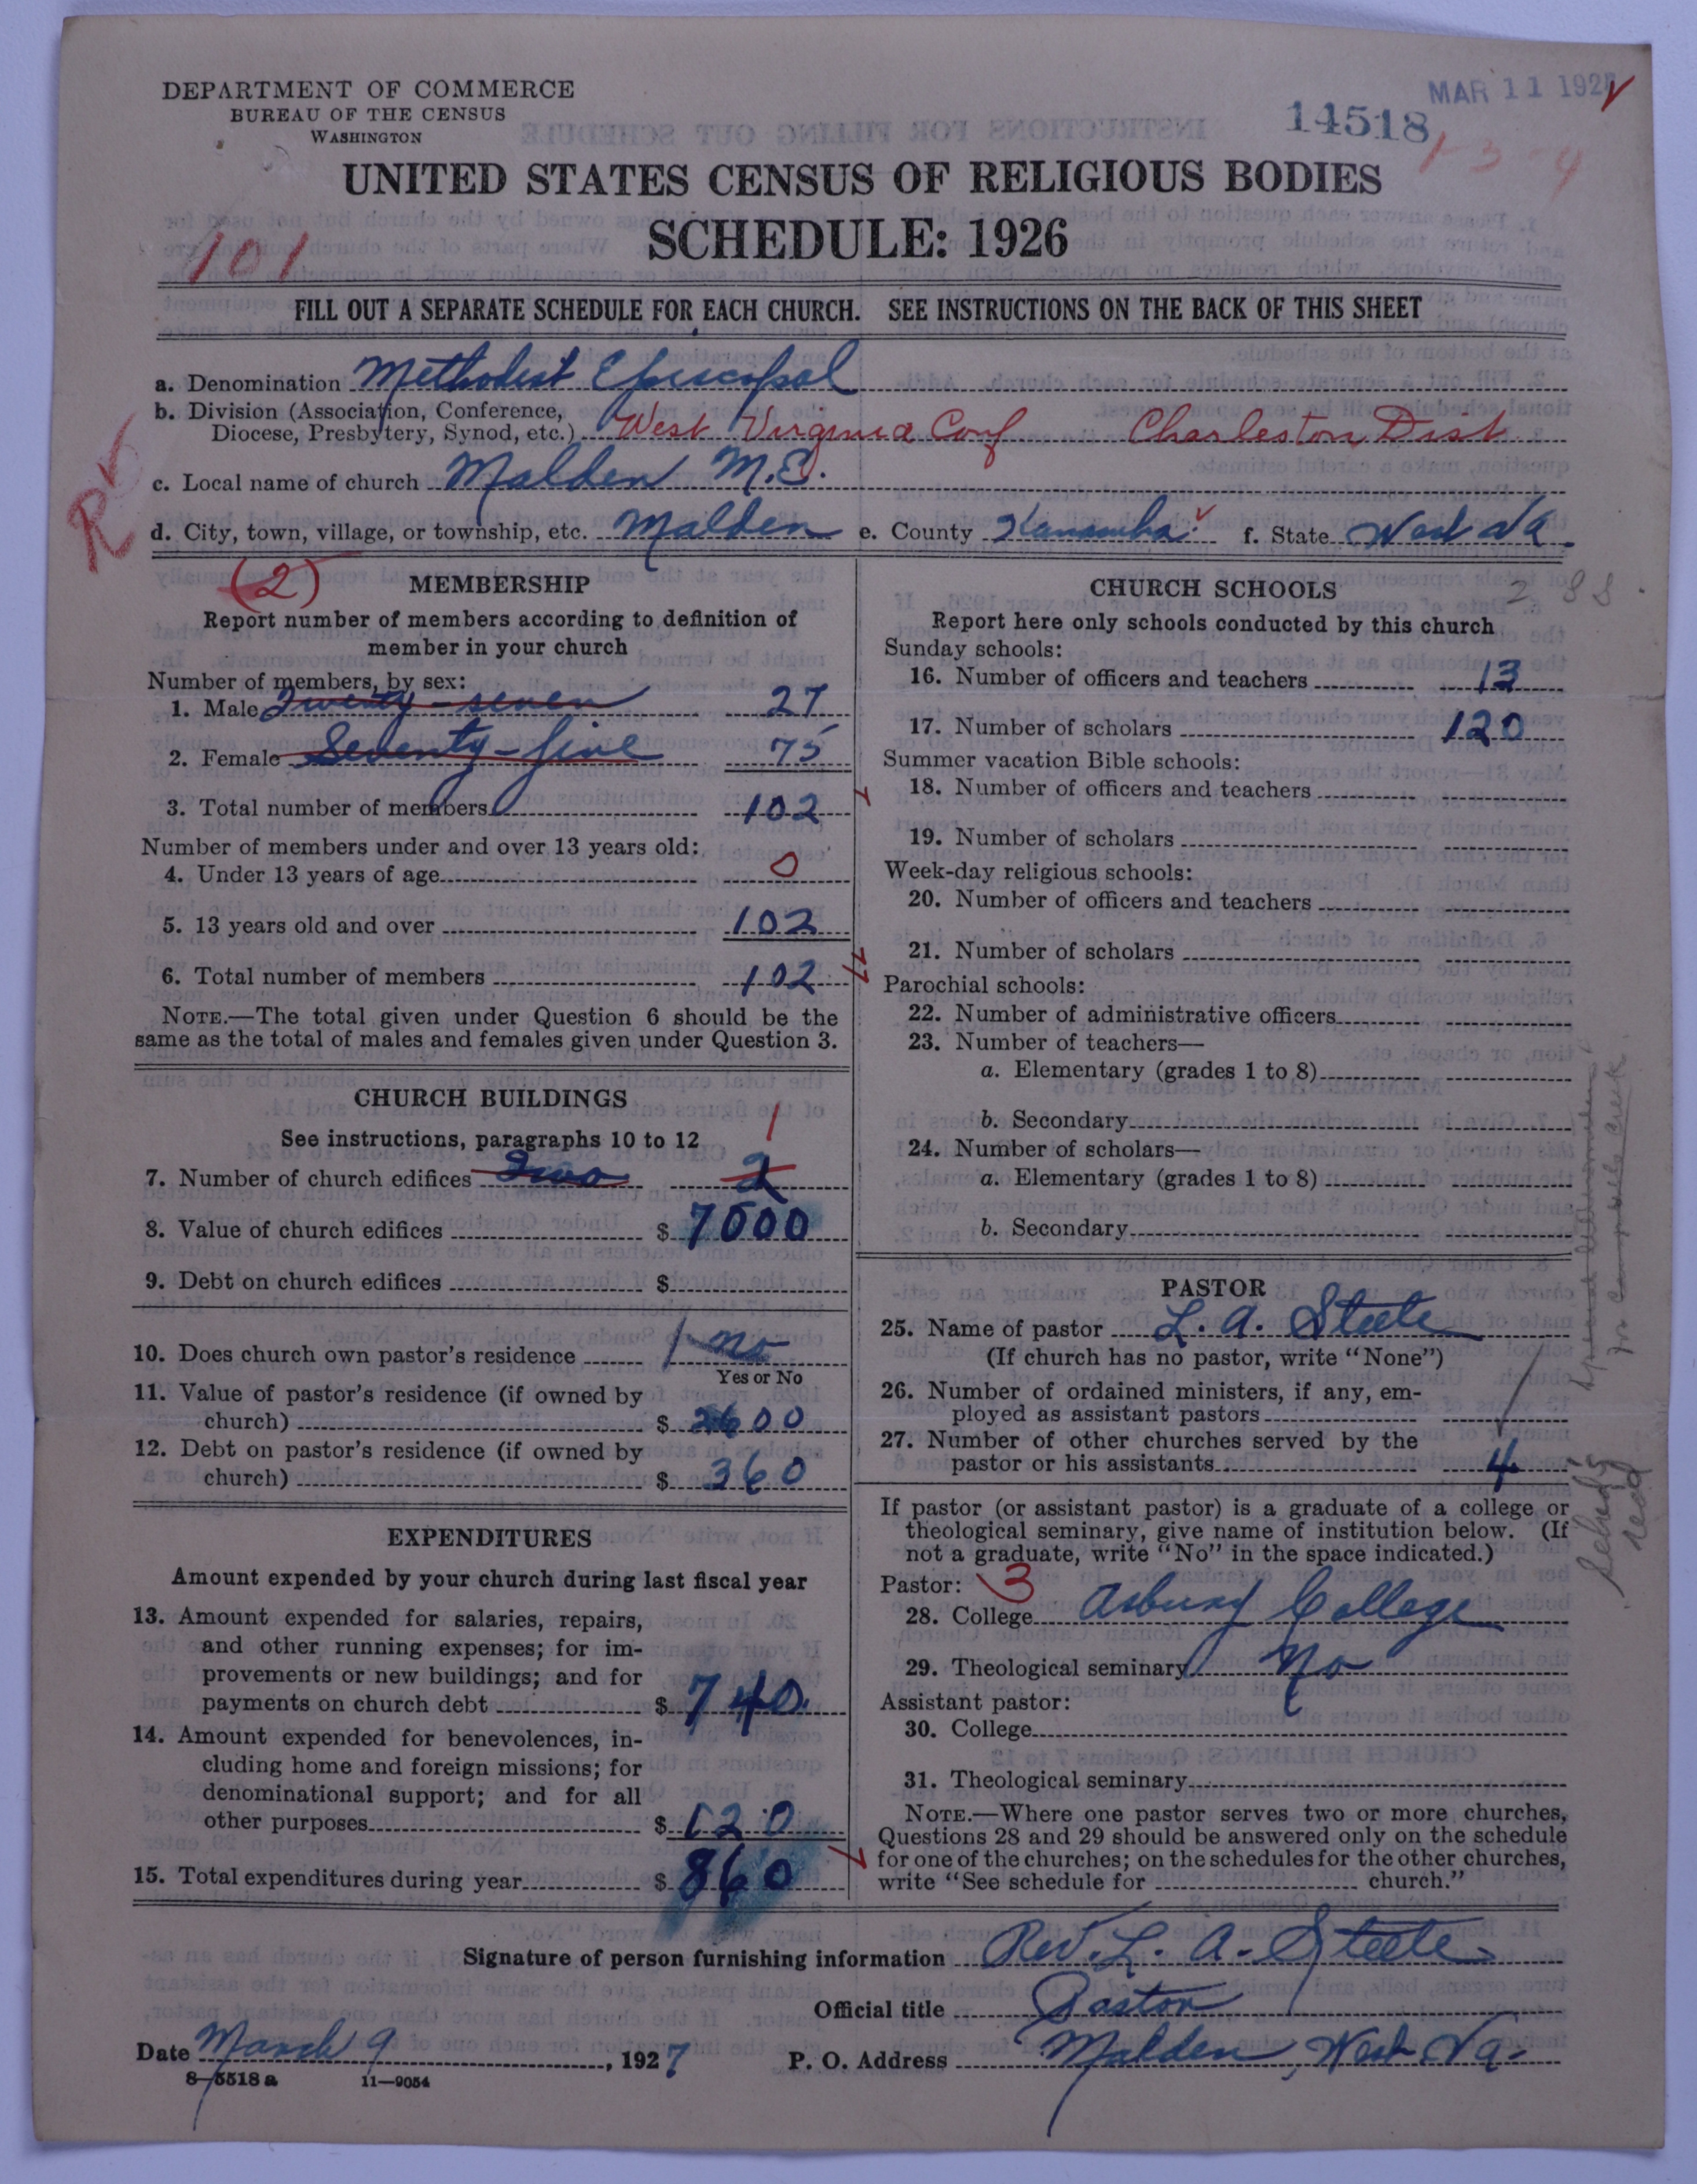 DEPARTMENT OF COMMERCE
BUREAU OF THE CENSUS
WASHINGTON
MAR 11 192
14518
1-3-4
UNITED STATES CENSUS OF RELIGIOUS BODIES
SCHEDULE: 1926
101
FILL OUT A SEPARATE SCHEDULE FOR EACH CHURCH. SEE INSTRUCTIONS ON THE BACK OF THIS SHEET
a. Denomination Methodist Episcopal
b. Division (Association, Conference,
Diocese, Presbytery, Synod, etc.) West Virginia Conf Charleston Dist.
c. Local name of church Malden M.E.
d. City, town, village, or township, etc. Malden e. County Kanawha f. State West Va.
(2) MEMBERSHIP
Report number of members according to definition of
member in your church
Number of members, by sex:
1. Male Twenty-seven 27
2. Female Seventy-five 75
3. Total number of members 102
Number of members under and over 13 years old:
4. Under 13 years of age 0
5. 13 years old and over 102
6. Total number of members 102
NOTE.—The total given under Question 6 should be the
same as the total of males and females given under Question 3.
CHURCH BUILDINGS
See instructions, paragraphs 10 to 12 1
7. Number of church edifices Two 2
8. Value of church edifices $ 7000
9. Debt on church edifices $
10. Does church own pastor's residence 1 no
Yes or No
11. Value of pastor's residence (if owned by
church) $ 2600
12. Debt on pastor's residence (if owned by
church) $ 360
EXPENDITURES
Amount expended by your church during last fiscal year
13. Amount expended for salaries, repairs,
and other running expenses; for im-
provements or new buildings; and for
payments on church debt $ 740.
14. Amount expended for benevolences, in-
cluding home and foreign missions; for
denominational support; and for all
other purposes $ 120
15. Total expenditures during year $ 860
CHURCH SCHOOLS
288
Report here only schools conducted by this church
Sunday schools:
16. Number of officers and teachers 13
17. Number of scholars 120
Summer vacation Bible schools:
18. Number of officers and teachers
19. Number of scholars
Week-day religious schools:
20. Number of officers and teachers
21. Number of scholars
Parochial schools:
22. Number of administrative officers
23. Number of teachers—
a. Elementary (grades 1 to 8)
b. Secondary
24. Number of scholars—
a. Elementary (grades 1 to 8)
b. Secondary
PASTOR
25. Name of pastor L. A. Steele
(If church has no pastor, write "None")
26. Number of ordained ministers, if any, em-
ployed as assistant pastors
27. Number of other churches served by the
pastor or his assistants 4
If pastor (or assistant pastor) is a graduate of a college or
theological seminary, give name of institution below. (If
not a graduate, write "No" in the space indicated.)
Pastor: 3
28. College Asbury College
29. Theological seminary No
Assistant pastor:
30. College
31. Theological seminary
NOTE.—Where one pastor serves two or more churches,
Questions 28 and 29 should be answered only on the schedule
for one of the churches; on the schedules for the other churches,
write "See schedule for church."
Signature of person furnishing information Rev. L. A. Steele
Official title Pastor
Date March 9, 1927 P. O. Address Malden, West Va.
8—5518 a 11—9054